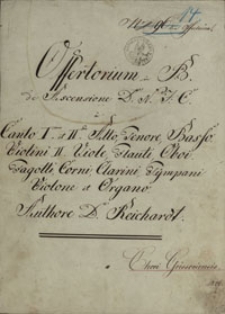 Offertorium in B.
de Ascensione D. N. J. C.
a
Canto I. et II. Alto, Tenore, Basso
Violini II. Viole, Flauti, Oboi
Fagotti, Corni, Clarini, Tympani
Violone et Organo
Authore D. Reichardt.
Chori